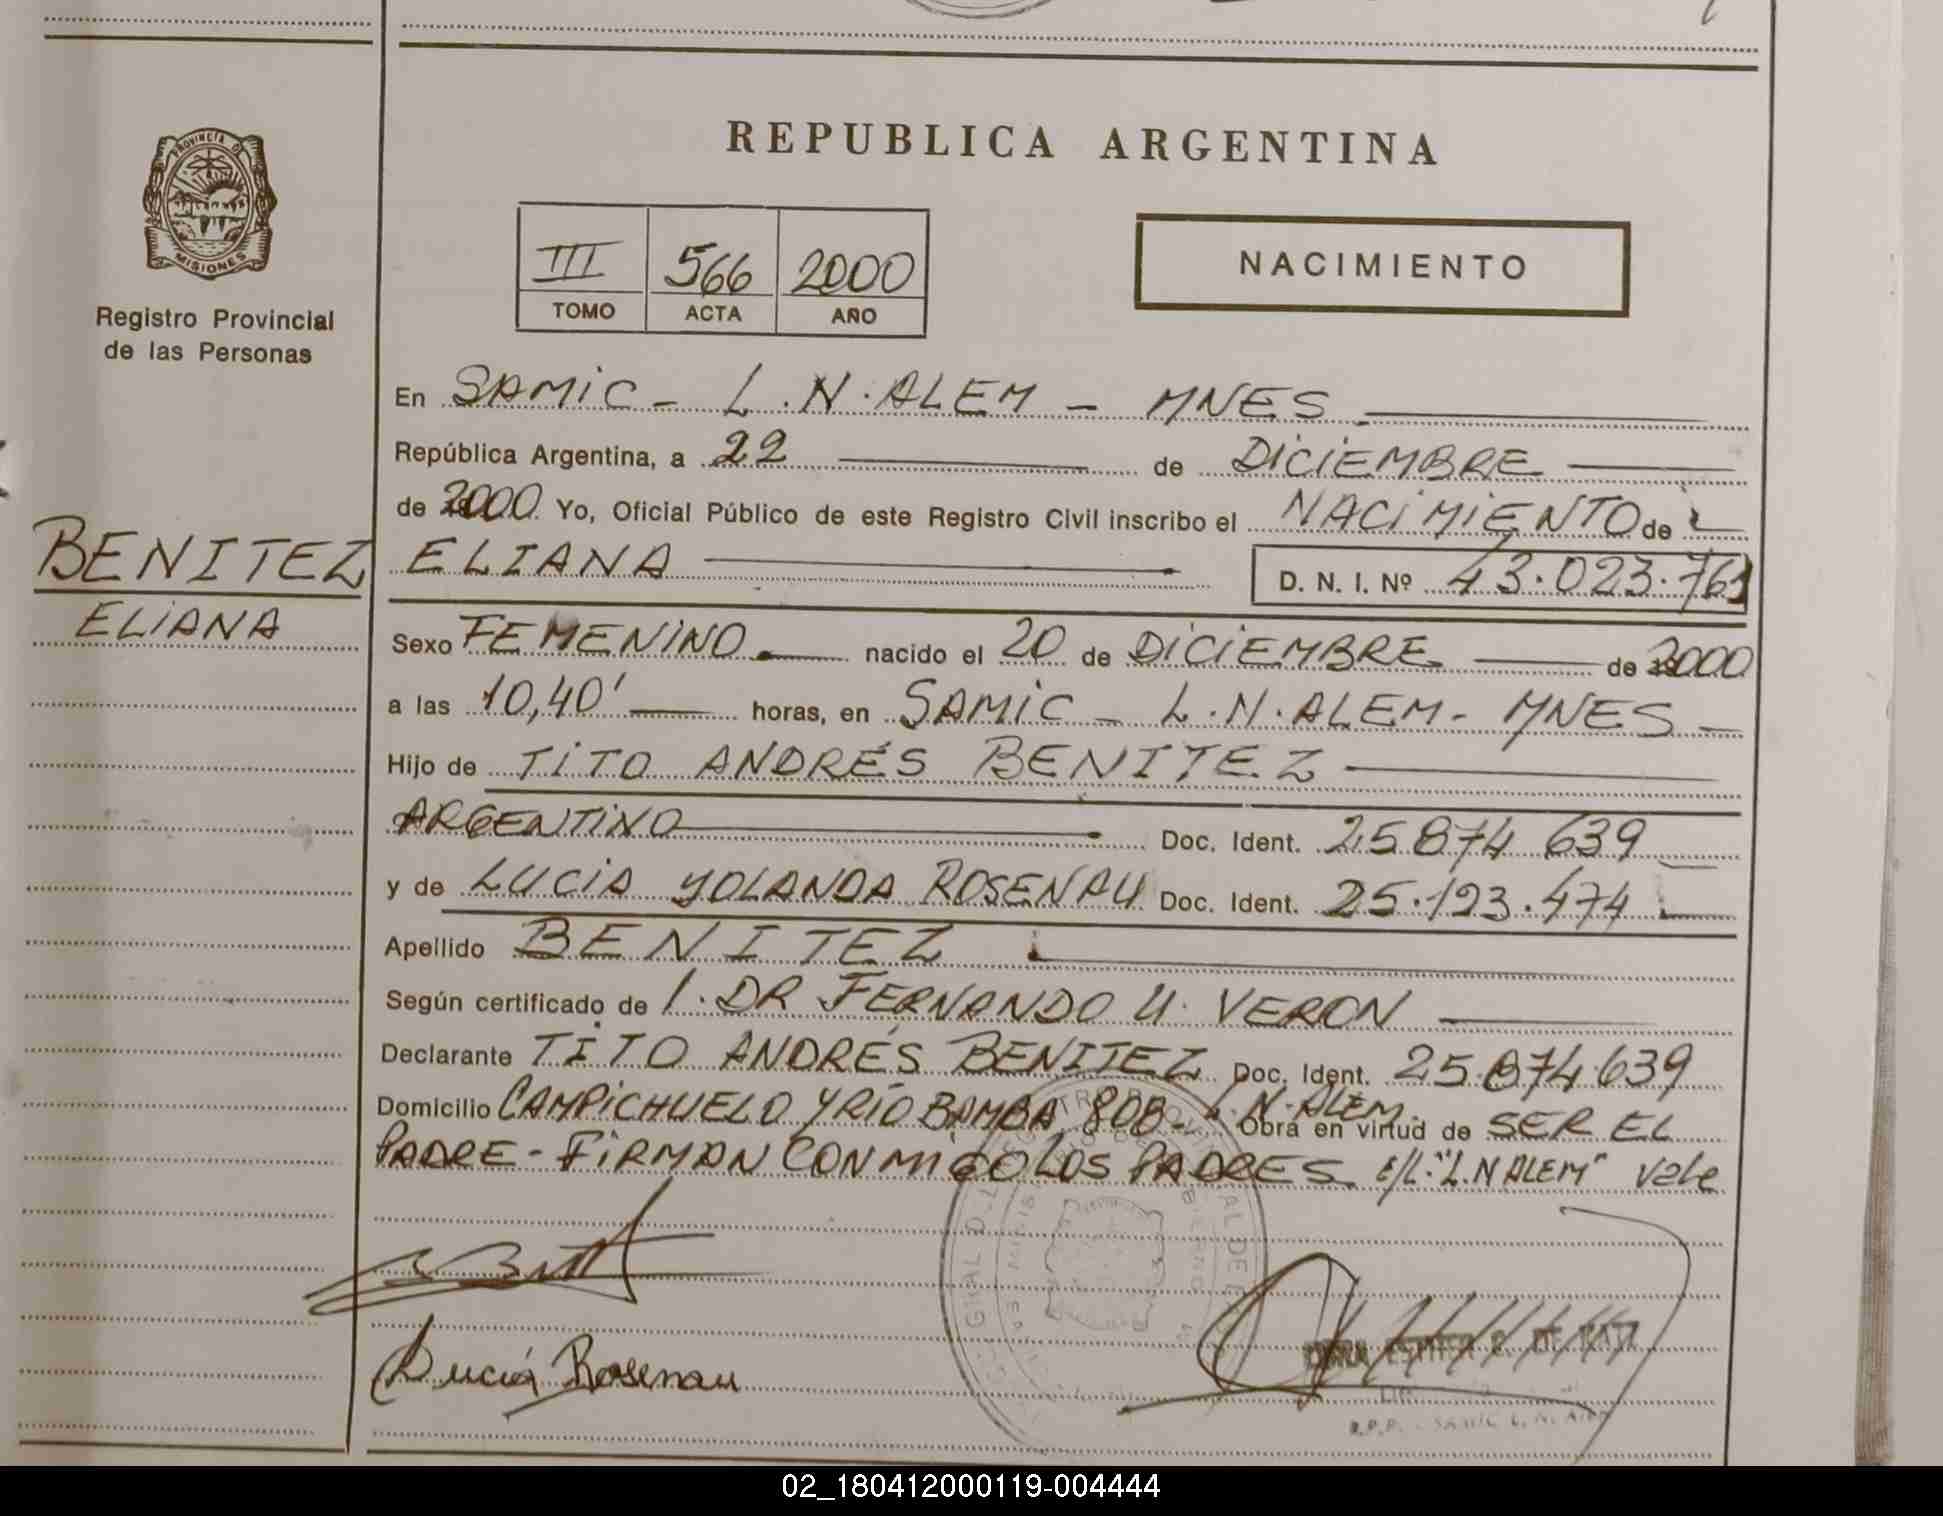 REPUBLICA ARGENTINA
PROVINCIA DE
MISIONES
Registro Provincial
de las Personas
III 566 2000
TOMO ACTA AÑO
NACIMIENTO
BENITEZ
ELIANA
En SAMIC - L.N.ALEM - MNES
República Argentina, a 22 de DICIEMBRE
de 2000 Yo, Oficial Público de este Registro Civil inscribo el NACIMIENTO de
ELIANA D. N. I. Nº 43.023.761
Sexo FEMENINO nacido el 20 de DICIEMBRE de 2000
a las 10,40' horas, en SAMIC - L.N.ALEM - MNES -
Hijo de TITO ANDRÉS BENITEZ
ARGENTINO Doc. Ident. 25.874.639
y de LUCIA YOLANDA ROSENAU Doc. Ident. 25.193.474
Apellido BENITEZ
Según certificado de 1. DR FERNANDO U. VERON
Declarante TITO ANDRÉS BENITEZ Doc. Ident. 25.874.639
Domicilio CAMPICHUELO Y RÍO BAMBA 808 - L.N.ALEM. Obra en virtud de SER EL
PADRE - FIRMAN CONMIGO LOS PADRES. E/L: "L.N ALEM" Vale
Lucía Rosenau
R.P.P. - SAMIC L. N. ALEM
02_180412000119-004444